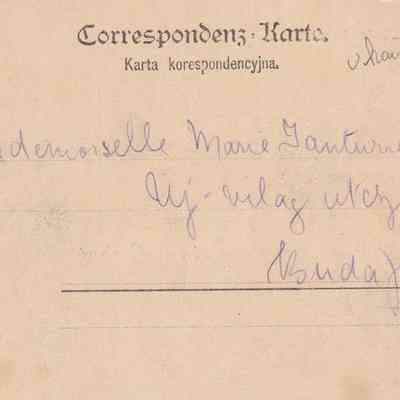 Correspondenz-Karte.
Karta korespondencyjna.
demoiselle Marie
Uj-világ utcz
Buda